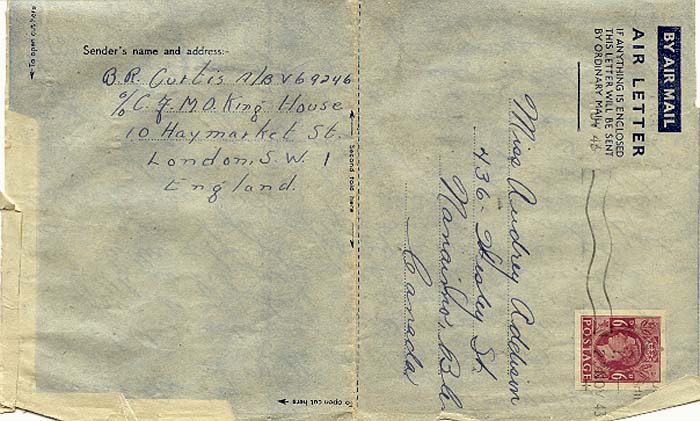 To open cut here
Sender's name and address:-
B.R. Curtis A/B V69246
℅ C.F.M.O. King House
10 Haymarket St.
London, S.W. 1
England.
Second fold here
To open cut here
BY AIR MAIL
AIR LETTER
IF ANYTHING IS ENCLOSED
THIS LETTER WILL BE SENT
BY ORDINARY MAIL
Miss Audrey Addison
436 - Wesley St.
Nanaimo, B.C.
Canada
6D 6D
POSTAGE
NOV 43